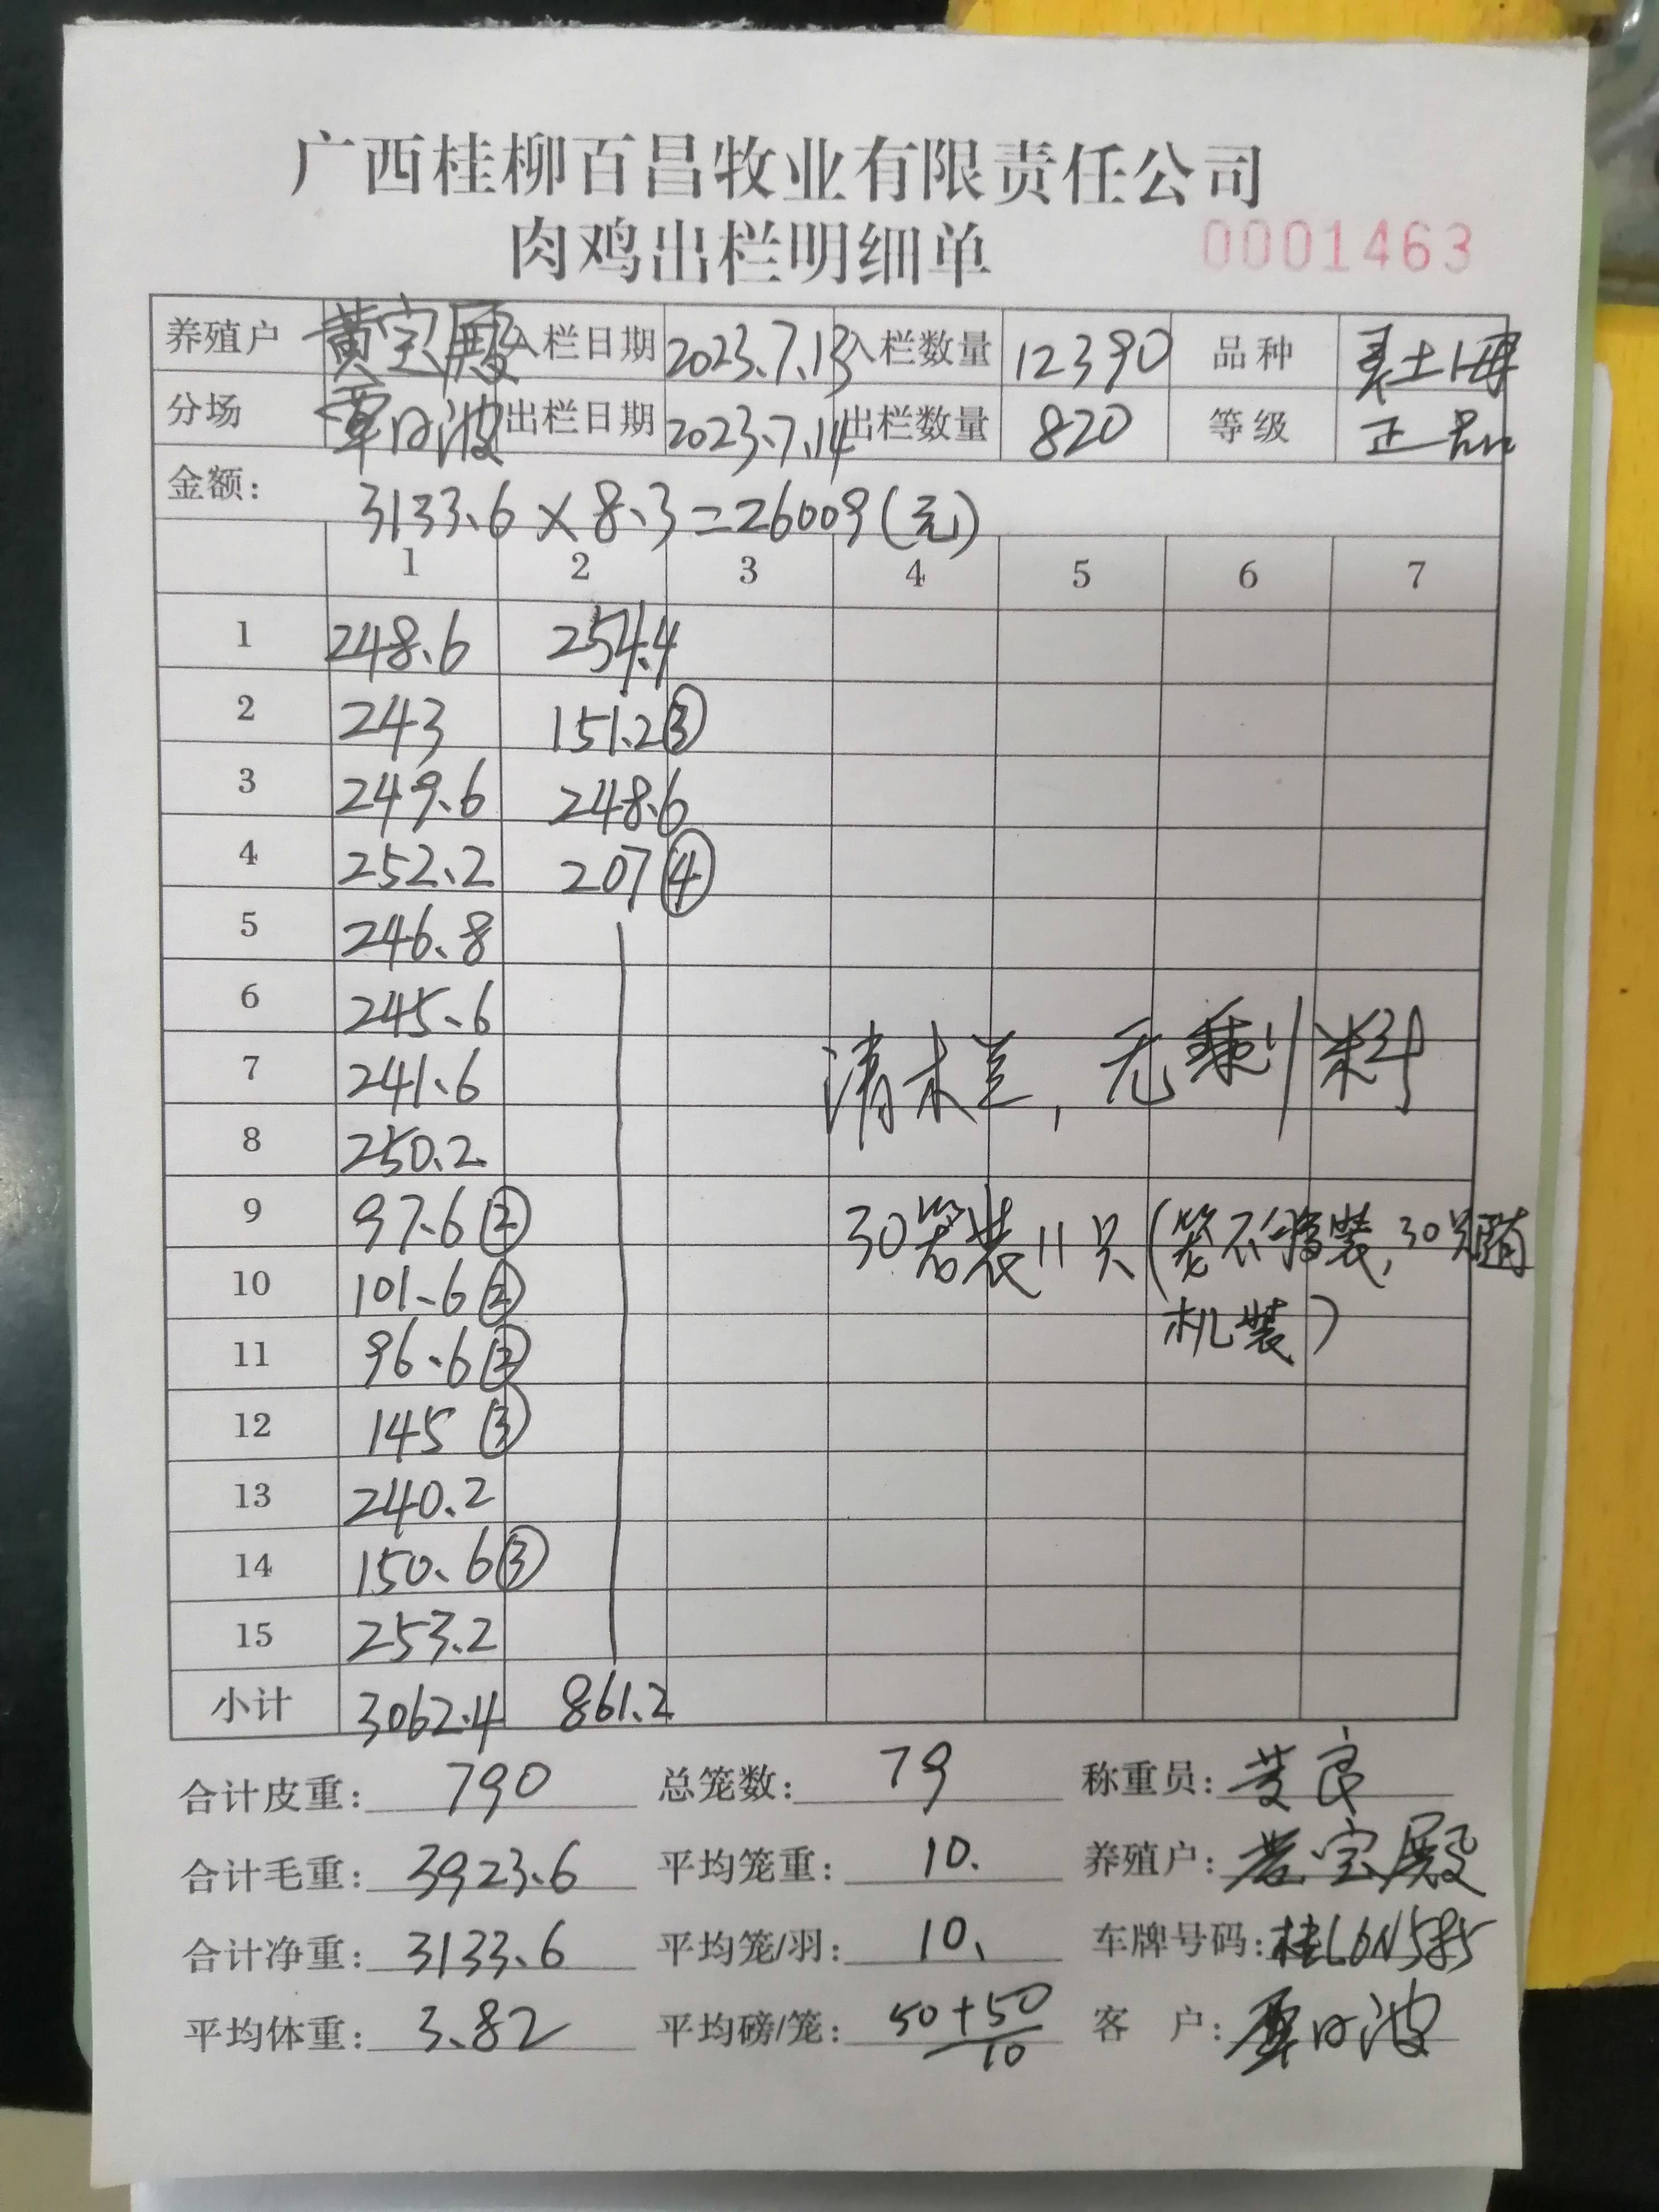 广西桂柳百昌牧业有限责任公司
肉鸡出栏明细单 0001463
养殖户 黄宝殿 入栏日期 2023.7.13 入栏数量 12390 品种 土
分场 覃日波 出栏日期 2023.7.14 出栏数量 820 等级 正品
金额: 3133.6 × 8.3 = 26009(元)
1 2 3 4 5 6 7
1 248.6 254.4
2 243 151.2③
3 249.6 248.6
4 252.2 207④
5 246.8
6 245.6
7 241.6 清未, 无剩料
8 250.2
9 97.6② 30笼装11只(笼不够装,30只随
10 101.6②
机装)
11 96.6②
12 145③
13 240.2
14 150.6③
15 253.2
小计 3062.4 861.2
合计皮重: 790 总笼数: 79 称重员: 良
合计毛重: 3923.6 平均笼重: 10. 养殖户: 黄宝殿
合计净重: 3133.6 平均笼/羽: 10. 车牌号码:
平均体重: 3.82 平均磅/笼: 50+50/10 客 户: 覃日波